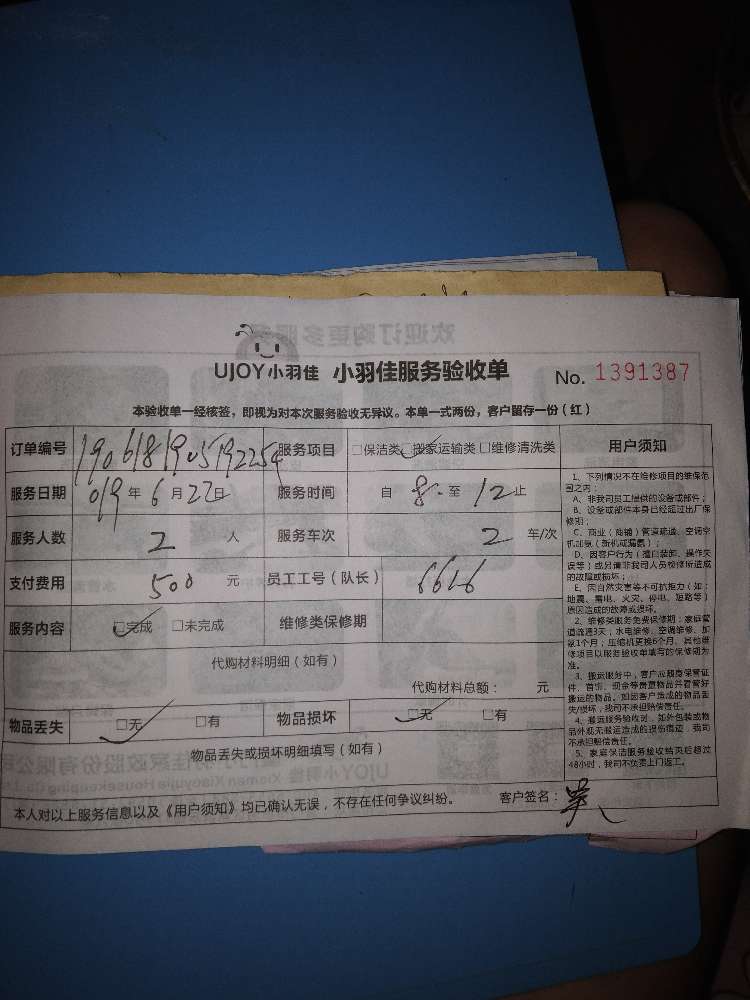 欢迎订购更多服务
UJOY小羽佳 小羽佳服务验收单 No. 1391387
本验收单一经核签，即视为对本次服务验收无异议。本单一式两份，客户留存一份（红）
订单编号 1906181905192254 服务项目 □保洁类 ☑搬家运输类 □维修清洗类
服务日期 019年6月22日 服务时间 自8-至12止
服务人数 2 人 服务车次 2 车/次
支付费用 500 元 员工工号（队长） 6616
服务内容 ☑完成 □未完成 维修类保修期
代购材料明细（如有）
代购材料总额： 元
物品丢失 ☑无 □有 物品损坏 ☑无 □有
物品丢失或损坏明细填写（如有）
本人对以上服务信息以及《用户须知》均已确认无误，不存在任何争议纠纷。 客户签名：
用户须知
1、下列情况不在维修项目的维保范
围之内：
A、非我司员工提供的设备或部件；
B、设备或部件本身已经超过出厂保
修期；
C、商业（商铺）管道疏通、空调空
机加氨（新机或漏氨）；
D、因客户行为（擅自装卸、操作失
误等）或另请非我司人员检修所造成
的故障或损坏；
E、因自然灾害等不可抗拒力（如：
地震、雷电、火灾、停电、短路等）
原因造成的故障或损坏。
2、维修类服务免费保修期：家庭管
道疏通3天；水电维修、空调维修、加
氨1个月；压缩机更换6个月，其他维
修项目以服务验收单填写的保修期为
准。
3、搬运服务中，客户应随身保管证
件、首饰、现金等贵重物品并看管好
搬运的物品。如因客户造成的物品丢
失/损坏，我司不承担赔偿责任。
4、搬运服务验收时，如外包装或物
品外观无搬运造成的损伤痕迹，我司
不承担赔偿责任。
5、家庭保洁服务验收结束后超过
48小时，我司不负责上门返工。